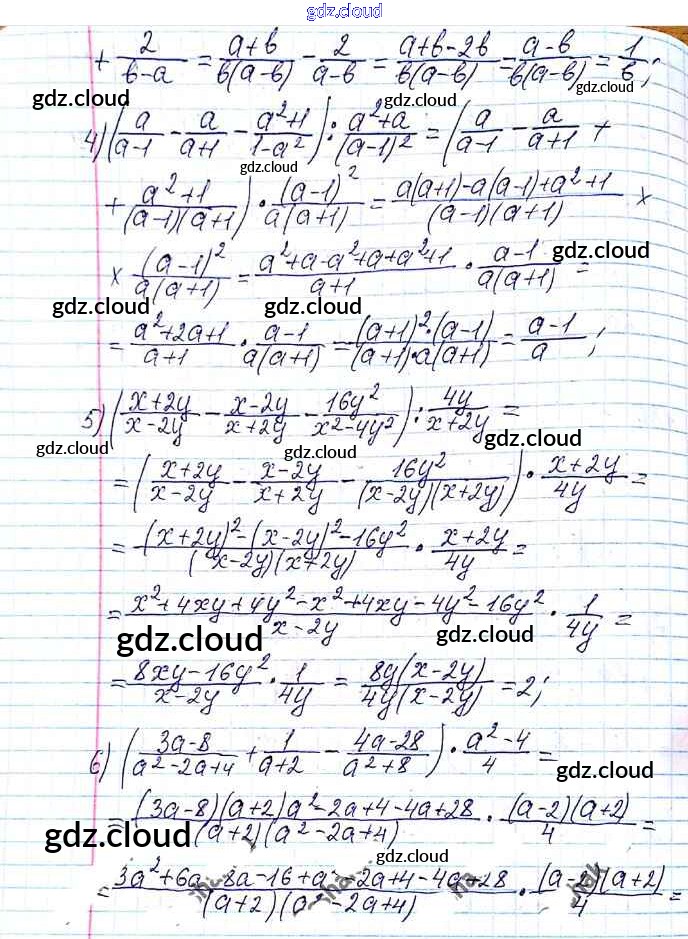 gdz.cloud
+ 2/(b-a) = (a+b)/(b(a-b)) - 2/(a-b) = (a+b-2b)/(b(a-b)) = (a-b)/(b(a-b)) = 1/b;
gdz.cloud gdz.cloud gdz.cloud
4) (a/(a-1) - a/(a+1) - (a²+1)/(1-a²)) : (a²+a)/(a-1)² = (a/(a-1) - a/(a+1) +
gdz.cloud
+ (a²+1)/((a-1)(a+1))) · (a-1)²/(a(a+1)) = (a(a+1)-a(a-1)+a²+1)/((a-1)(a+1)) ×
× (a-1)²/(a(a+1)) = (a²+a-a²+a+a²+1)/(a+1) · (a-1)/(a(a+1)) =
gdz.cloud gdz.cloud gdz.cloud
= (a²+2a+1)/(a+1) · (a-1)/(a(a+1)) = ((a+1)²·(a-1))/((a+1)·a(a+1)) = (a-1)/a;
5) ((x+2y)/(x-2y) - (x-2y)/(x+2y) - 16y²/(x²-4y²)) : 4y/(x+2y) =
gdz.cloud gdz.cloud gdz.cloud
= ((x+2y)/(x-2y) - (x-2y)/(x+2y) - 16y²/((x-2y)(x+2y))) · (x+2y)/4y =
= ((x+2y)²-(x-2y)²-16y²)/((x-2y)(x+2y)) · (x+2y)/4y =
= (x²+4xy+4y²-x²+4xy-4y²-16y²)/(x-2y) · 1/4y =
gdz.cloud gdz.cloud
= (8xy-16y²)/(x-2y) · 1/4y = 8y(x-2y)/(4y(x-2y)) = 2;
6) ((3a-8)/(a²-2a+4) + 1/(a+2) - (4a-28)/(a²+8)) · (a²-4)/4 =
gdz.cloud
= ((3a-8)(a+2)a²-2a+4-4a+28)/((a+2)(a²-2a+4)) · ((a-2)(a+2))/4 =
gdz.cloud gdz.cloud
= (3a²+6a-8a-16+a²-2a+4-4a+28)/((a+2)(a²-2a+4)) · ((a-2)(a+2))/4 =